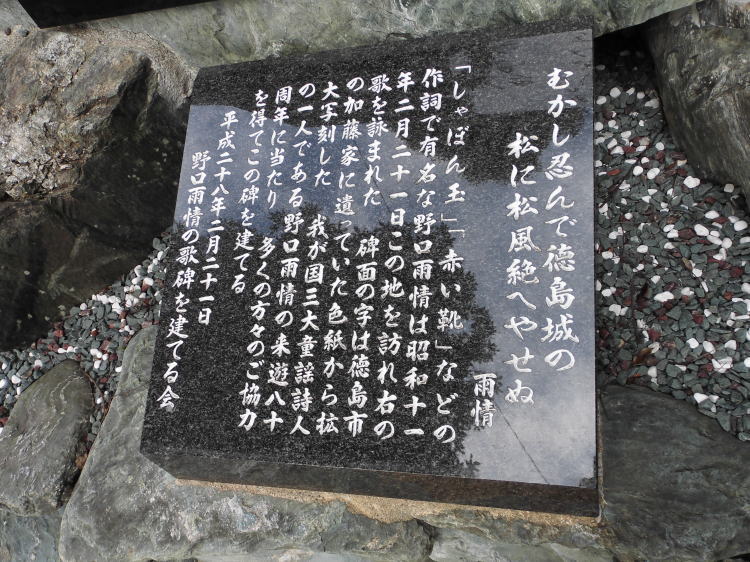 むかし忍んで徳島城の
松に松風絶へやせぬ
雨情
「しゃぼん玉」「赤い靴」などの
作詞で有名な野口雨情は昭和十一
年二月二十一日この地を訪れ右の
歌を詠まれた 碑面の字は徳島市
の加藤家に遺っていた色紙から拡
大写刻した 我が国三大童謡詩人
の一人である野口雨情の来遊八十
周年に当たり 多くの方々のご協力
を得てこの碑を建てる
平成二十八年二月二十一日
野口雨情の歌碑を建てる会